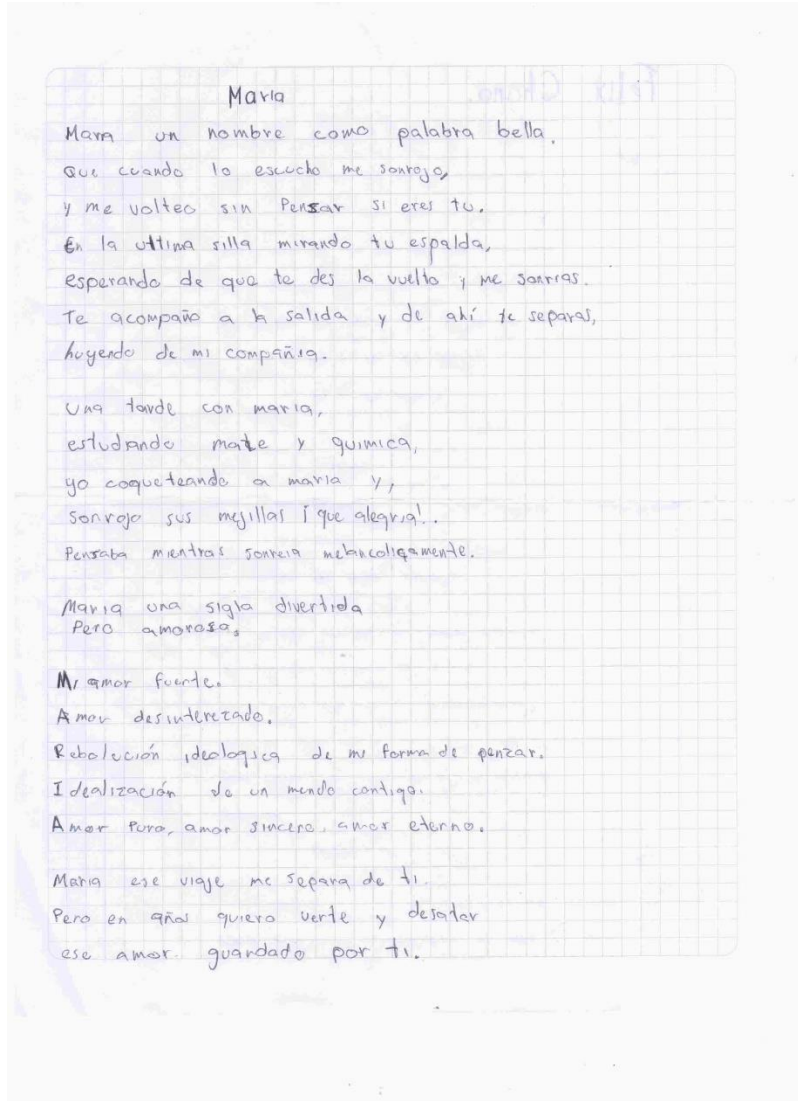 Maria
Maria un nombre como palabra bella.
que cuando lo escucho me sonrojo,
y me volteo sin Pensar si eres tu.
En la ultima silla mirando tu espalda,
esperando de que te des la vuelta y me sonrias.
Te acompaño a la salida y de ahí te separas,
huyendo de mi compañia.
Una tarde con maria,
estudiando mate y quimica,
yo coqueteando a maria y,
sonrojo sus mejillas ¡que alegria!..
Pensaba mientras sonreia melancoligamente.
Maria una sigla divertida
Pero amorosa,
Mi amor fuente.
Amor desinterezado.
Rebolución ideologica de mi forma de penzar.
Idealización de un mundo contigo.
Amor Puro, amor sincero, amor eterno.
Maria ese viaje me separa de ti.
Pero en años quiero verte y desatar
ese amor guardado por ti.